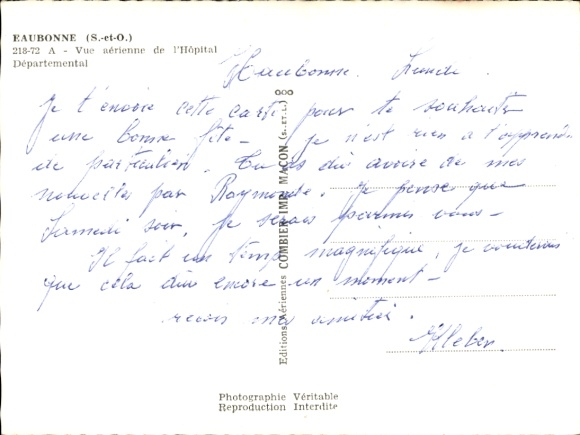 EAUBONNE (S.-et-O.)
218-72 A - Vue aérienne de l'Hôpital
Départemental
Eaubonne. Lundi.
Je t'envoie cette carte pour te souhaiter
une bonne fête - je n'est rien a t'apprendre
de particulier. Tu as dû avoire de mes
nouvelles par Raymonde. Je pense que
Samedi soir, je serais parmis vous -
Il fait un temps magnifique, je voudrais
que cela dure encore un moment -
recois mes amitiés.
Kleber.
Editions Aériennes COMBIER IMP. MACON (S.-et-L.)
Photographie Véritable
Reproduction Interdite